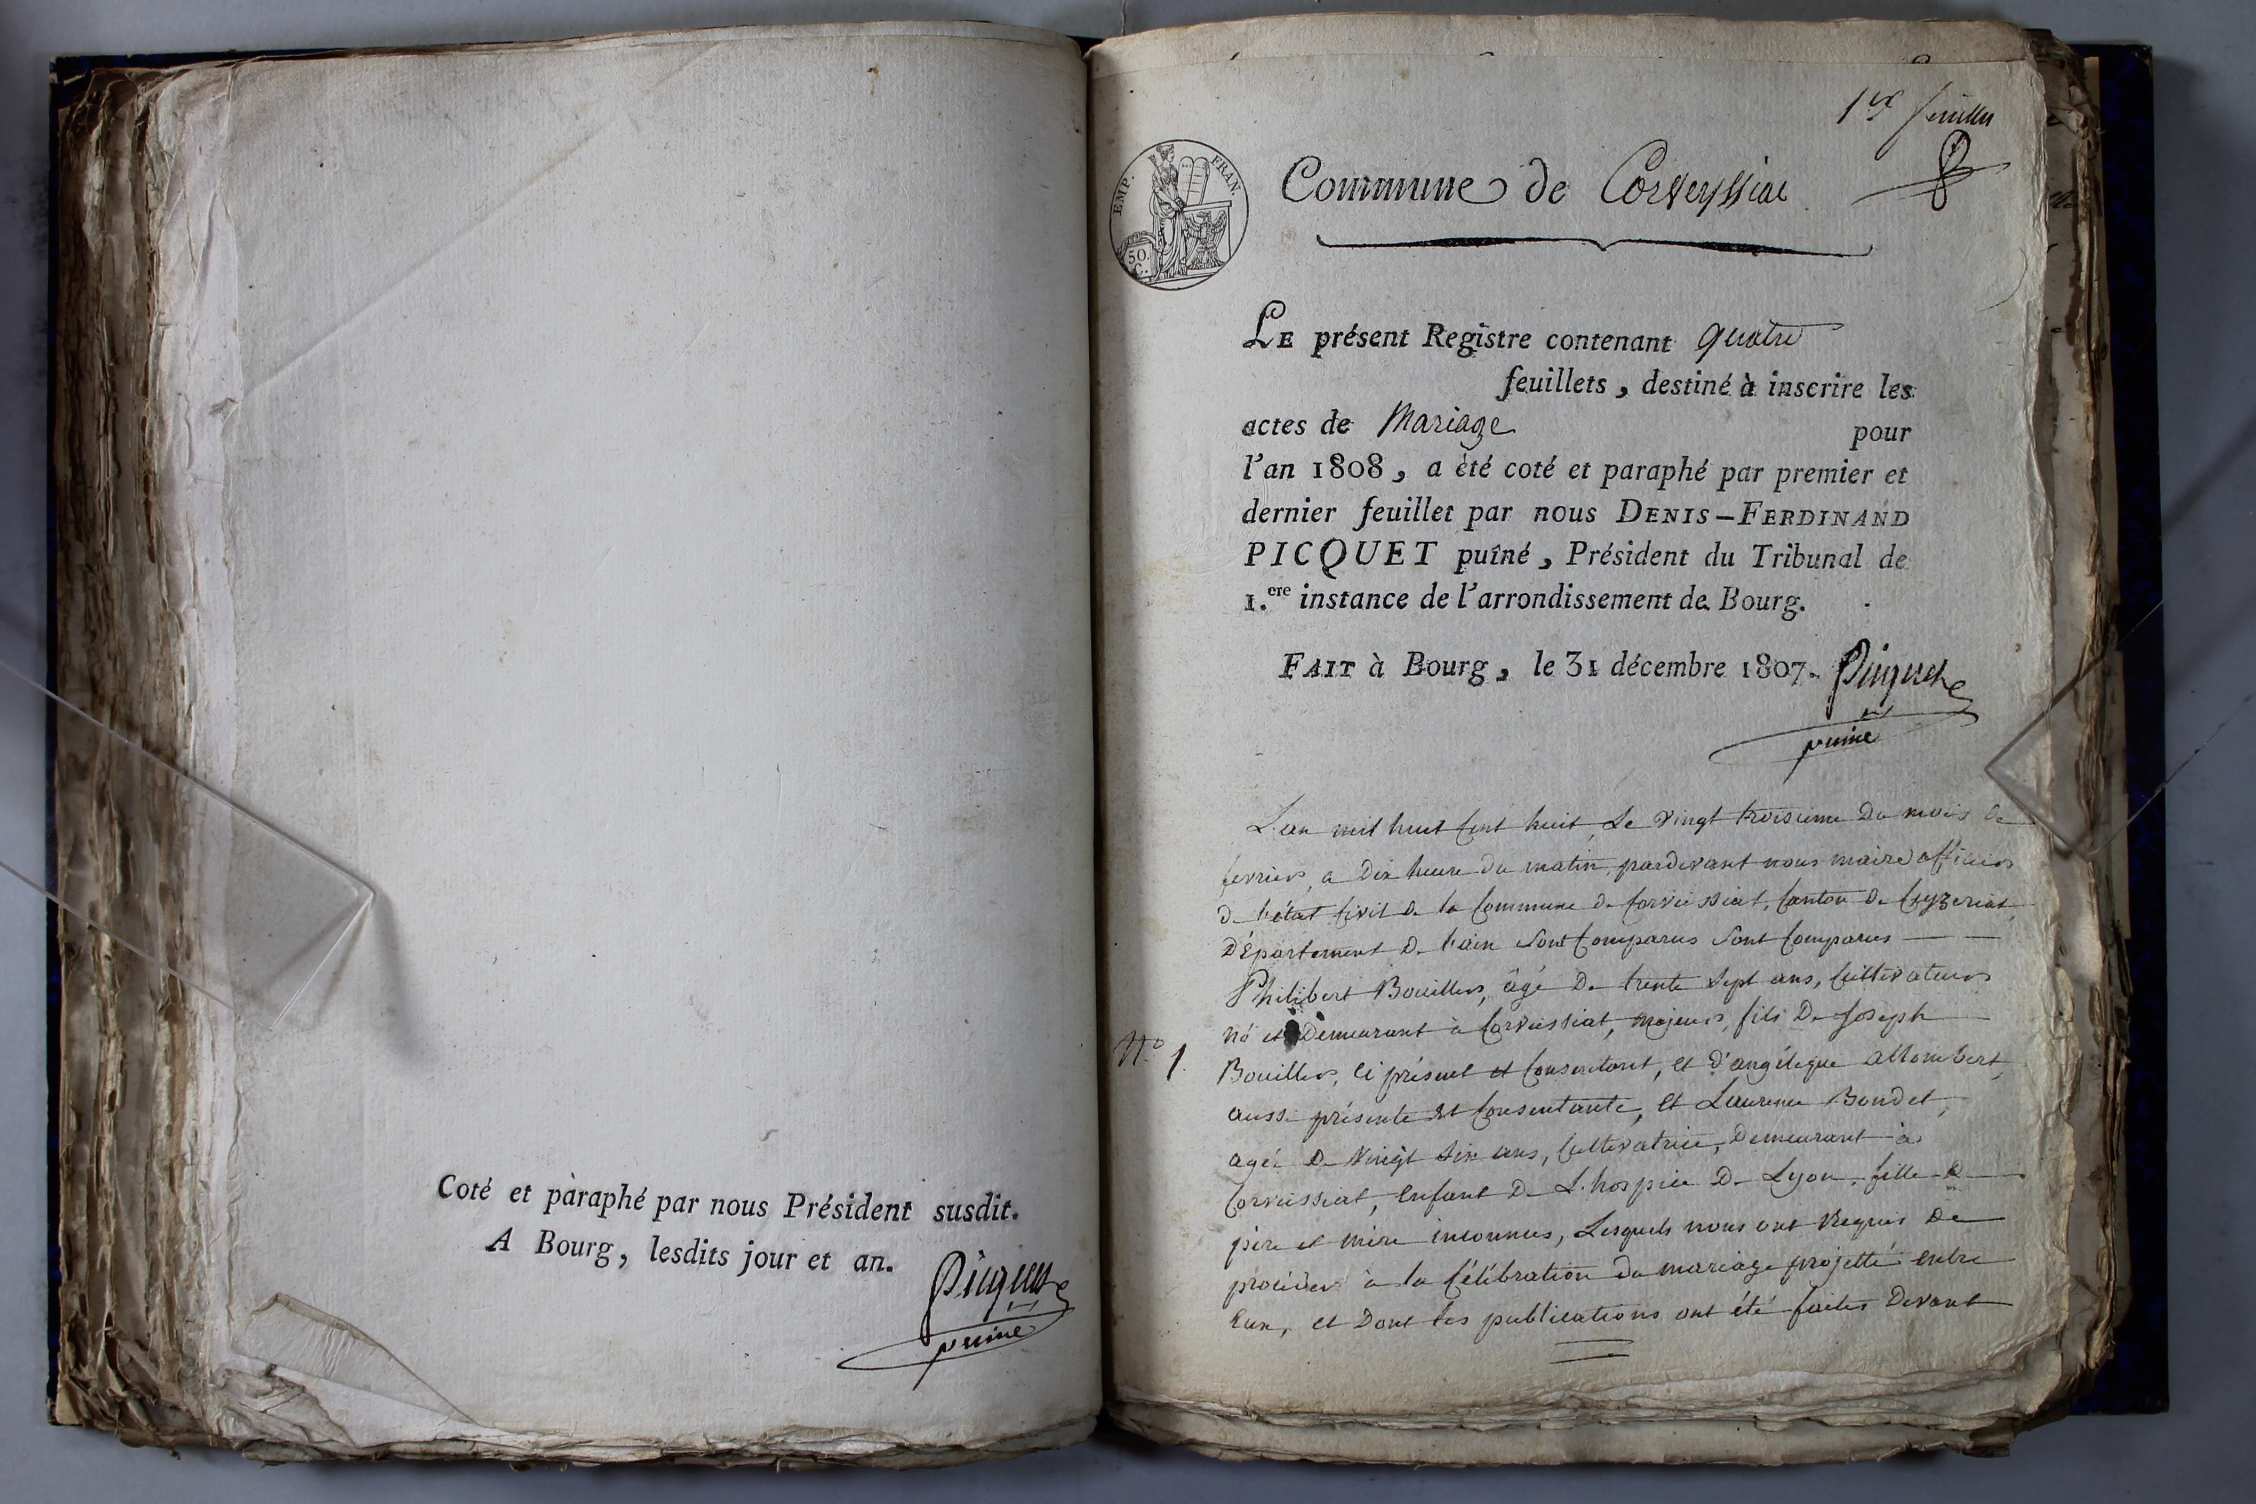 Coté et paraphé par nous Président susdit.
A Bourg, lesdits jour et an.
Picquet
puiné
1er feuillet
EMP. FRAN.
50
C.
Commune de Corveyssiat
LE présent Registre contenant quatre
feuillets, destiné à inscrire les
actes de Mariage pour
l'an 1808, a été coté et paraphé par premier et
dernier feuillet par nous DENIS-FERDINAND
PICQUET puîné, Président du Tribunal de
1.ere instance de l'arrondissement de Bourg.
FAIT à Bourg, le 31 décembre 1807. Picquet
puiné
L'an mil huit cent huit, Le vingt troisieme du mois de
fevrier, a dix heure du matin, pardevant nous maire officier
de l'état Civil de la Commune de Corveissiat, Canton de Ceyzeriat,
DÉpartement de l'ain sont Comparus sont Comparus
Philibert Bouiller, âgé de trente sept ans, Cultivateur
né et demeurant à Corveissiat, majeur, fils de Joseph
N.o 1.
Bouiller, ci présent et Consentant, et d'angélique allombert,
aussi présente et Consentante, et Laurence Bondet,
agée de vingt six ans, Cultivatrice, Demeurant à
Corveissiat, enfant de L'hospice de Lyon, fille de
père et mère inconnus, Lesquels nous ont requis de
procéder à la Célébration du mariage projetté entre
Eux, et dont les publications ont été faites devant